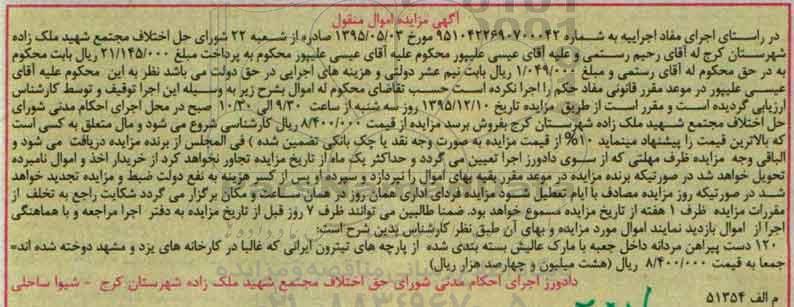 آگهی مزایده اموال منقول
در راستای اجرای مفاد اجراییه به شماره ۹۵۱۰۴۲۲۶۹۰۷۰۰۰۴۲ مورخ ۱۳۹۵/۰۵/۰۳ صادره از شعبه ۲۲ شورای حل اختلاف مجتمع شهید ملک زاده
شهرستان کرج له آقای رحیم رستمی و علیه آقای عیسی علیپور محکوم علیه آقای عیسی علیپور محکوم به پرداخت مبلغ ۲۱/۱۴۵/۰۰۰ ریال بابت محکوم
به در حق محکوم له آقای رستمی و مبلغ ۱/۰۴۹/۰۰۰ ریال بابت نیم عشر دولتی و هزینه های اجرایی در حق دولت می باشد نظر به این محکوم علیه آقای
عیسی علیپور در موعد مقرر قانونی مفاد حکم را اجرا نکرده است حسب تقاضای محکوم له اموال بشرح زیر به وسیله این اجرا توقیف و توسط کارشناس
ارزیابی گردیده است و مقرر است از طریق مزایده تاریخ ۱۳۹۵/۱۲/۱۰ روز سه شنبه از ساعت ۹/۳۰ الی ۱۰/۳۰ صبح در محل اجرای احکام مدنی شورای
حل اختلاف مجتمع شهید ملک زاده شهرستان کرج بفروش برسد مزایده از قیمت ۸/۴۰۰/۰۰۰ ریال کارشناسی شروع می شود و مال متعلق به کسی است
که بالاترین قیمت را پیشنهاد مینماید ۱۰% از قیمت مزایده به صورت وجه نقد یا چک بانکی تضمین شده ) فی المجلس از برنده مزایده دریافت می شود و
الباقی وجه مزایده ظرف مهلتی که از سوی دادورز اجرا تعیین می گردد و حداکثر یک ماه از تاریخ مزایده تجاوز نخواهد کرد از خریدار اخذ و اموال نامبرده
تحویل خواهد شد در صورتیکه برنده مزایده در موعد مقرر بقیه بهای اموال را نپردازد و سپرده او پس از کسر هزینه به نفع دولت ضبط و مزایده تجدید خواهد
شد در صورتیکه روز مزایده مصادف با ایام تعطیل شود مزایده فردای اداری همان روز در همان ساعت و مکان برگزار می گردد شکایت راجع به تخلف از
مقررات مزایده ظرف ۱ هفته از تاریخ مزایده مسموع خواهد بود. ضمنا طالبین می توانند ظرف ۷ روز قبل از تاریخ مزایده به دفتر اجرا مراجعه و با هماهنگی
اجرا از اموال بازدید نمایند اموال مورد مزایده و بهای آن طبق نظر کارشناس بدین شرح است:
۱۲۰ دست پیراهن مردانه داخل جعبه با مارک عالیش بسته بندی شده از پارچه های تیترون ایرانی که غالبا در کارخانه های یزد و مشهد دوخته شده اند=
جمعا به قیمت ۸/۴۰۰/۰۰۰ ریال (هشت میلیون و چهارصد هزار ریال)
دادورز اجرای احکام مدنی شورای حق اختلاف مجتمع شهید ملک زاده شهرستان کرج - شیوا ساحلی
م الف ۵۱۳۵۴